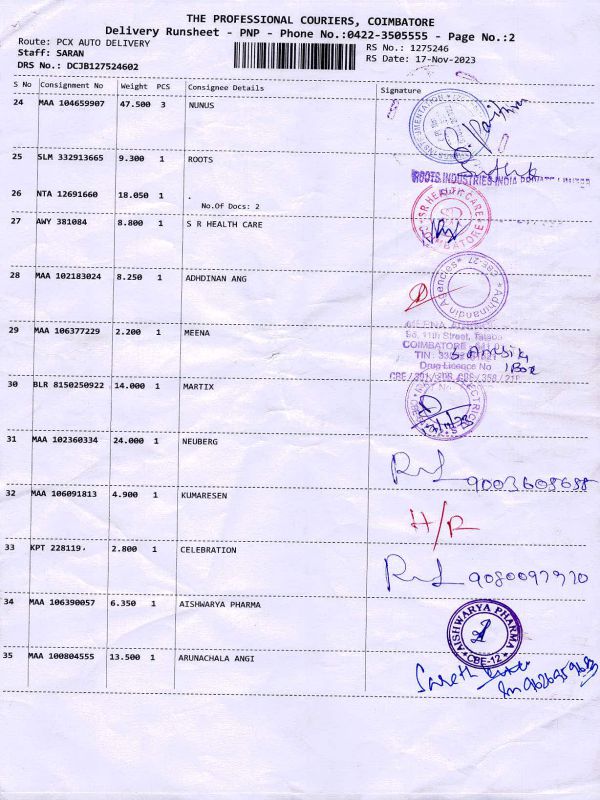 THE PROFESSIONAL COURIERS, COIMBATORE
Delivery Runsheet - PNP - Phone No.:0422-3505555 - Page No.:2
Route: PCX AUTO DELIVERY
RS No.: 1275246
Staff: SARAN
RS Date: 17-Nov-2023
DRS No.: DCJB127524602
S No Consignment No Weight PCS Consignee Details Signature
24 MAA 104659907 47.500 3 NUNUS
25 SLM 332913665 9.300 1 ROOTS
ROOTS INDUSTRIES INDIA PRIVATE LIMITED
26 NTA 12691660 18.050 1 .
No.Of Docs: 2
27 AWY 381084 8.800 1 S R HEALTH CARE
SR HEALTH CARE
COIMBATORE
28 MAA 102183024 8.250 1 ADHDINAN ANG
Adhinandin Agencies
CBE-27
29 MAA 106377229 2.200 1 MEENA
MEENA
95, 11th Street, Tatabad
COIMBATORE
TIN
Drug Licence No
1 Box
30 BLR 8150250922 14.000 1 MARTIX
31 MAA 102360334 24.000 1 NEUBERG
32 MAA 106091813 4.900 1 KUMARESEN
H/R
33 KPT 228119. 2.800 1 CELEBRATION
34 MAA 106390057 6.350 1 AISHWARYA PHARMA
AISHWARYA PHARMA
CBE-12
35 MAA 100804555 13.500 1 ARUNACHALA ANGI